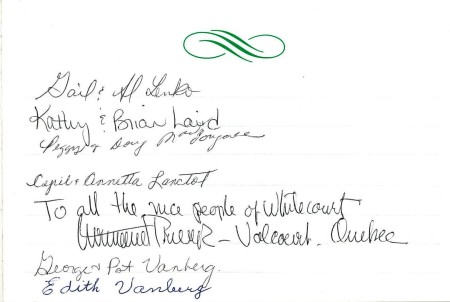 Gail & Al Lenko
Kathy & Brian Laird
Peggy & Doug
Cyril & Annetta Lanctot
To all the nice people of Whitecourt
- Valcourt - Quebec
George & Pat Vanberg.
Edith Vanberg